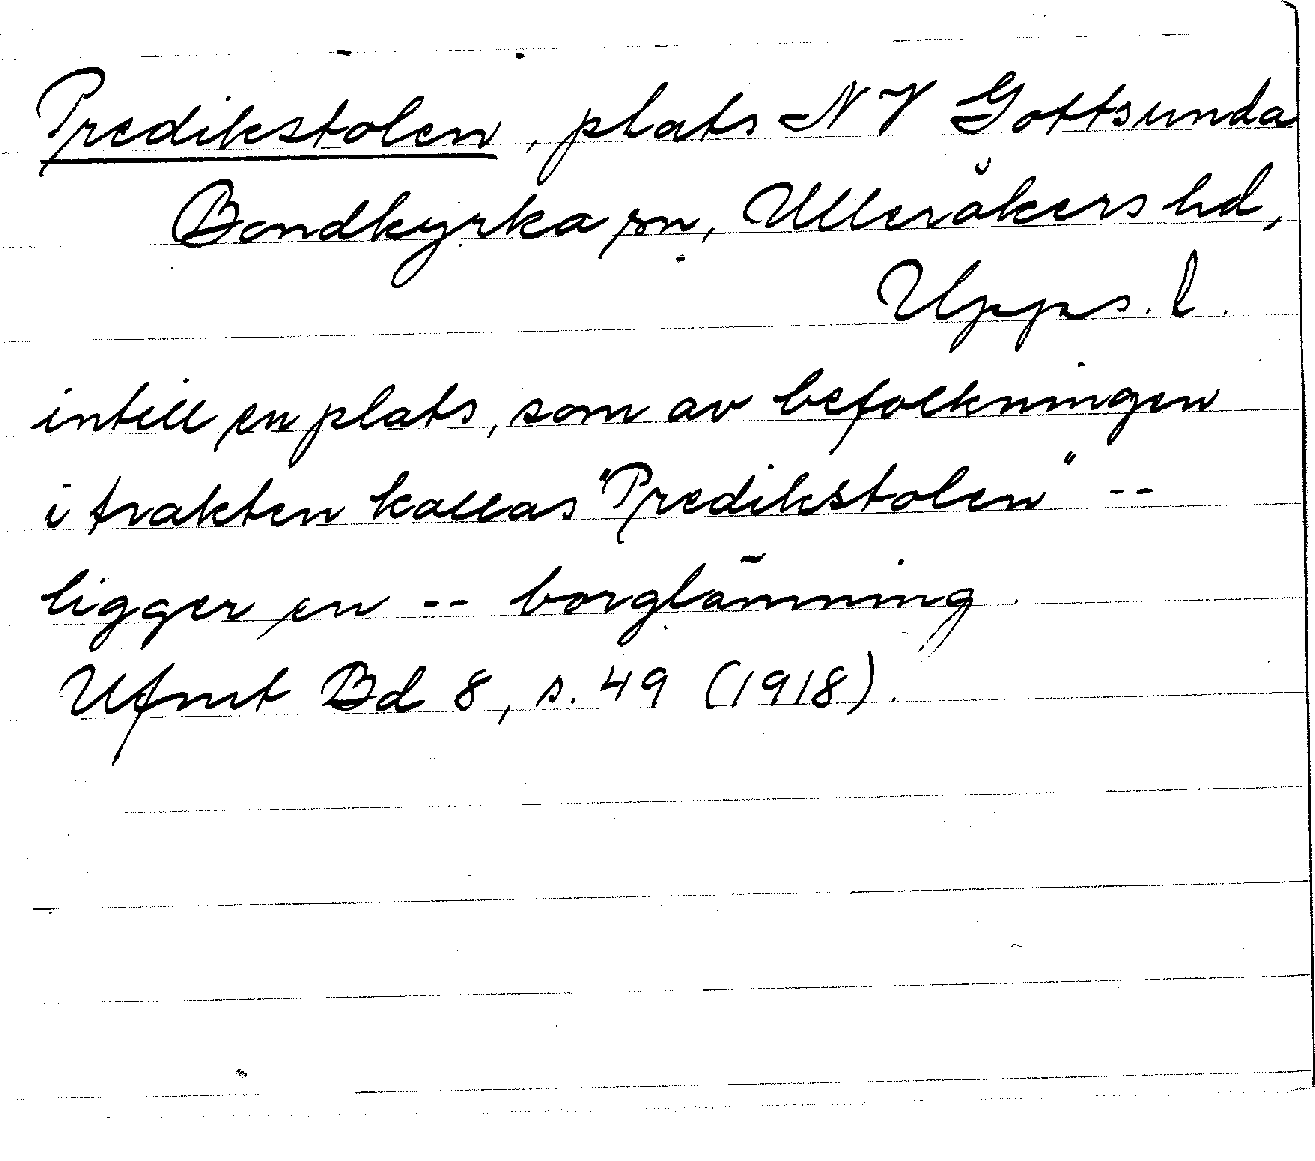 Predikstolen, plats NV Gottsunda
Bondkyrka sn, Ulleråkers hd,
Upps. l.
intill en plats, som av befolkningen
i trakten kallas "Predikstolen" --
ligger en -- borglämning.
Ufmt Bd 8, s. 49 (1918).